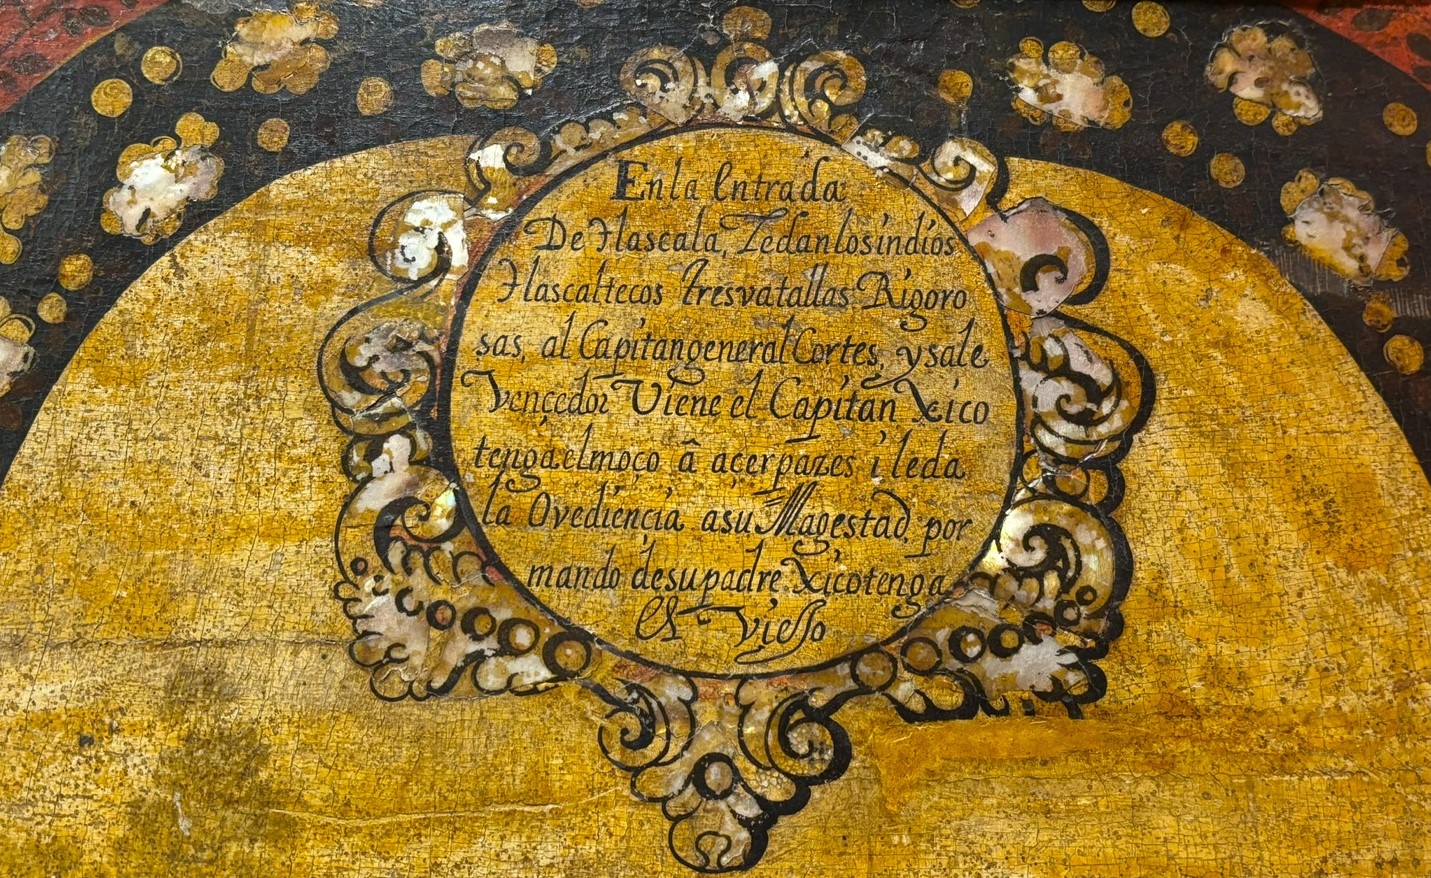 En la entrada
De tlascala, ledan los indios
tlascaltecos tres vatallas Rigoro
sas, al Capitan general Cortes, y sale
Vençedor Viene el Capitan Xico
tenga el moço â açer pazes i le da
la Ovediençia a su Magestad, por
mando de su padre Xicotenga
el Viejo